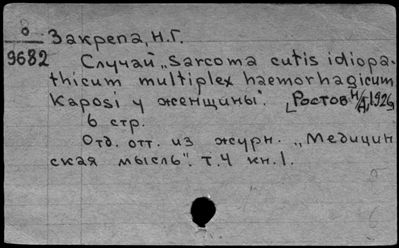 8
9682
Закрепа, Н.Г.
Случай „Sarcoma cutis idiopa-
thicum multiplex haemorhagicum
Kaposi у женщины". [Ростов н/Д, 1926]
6 стр.
Отд. отт. из журн. „Медицин
ская мысль". т.4 кн.1.